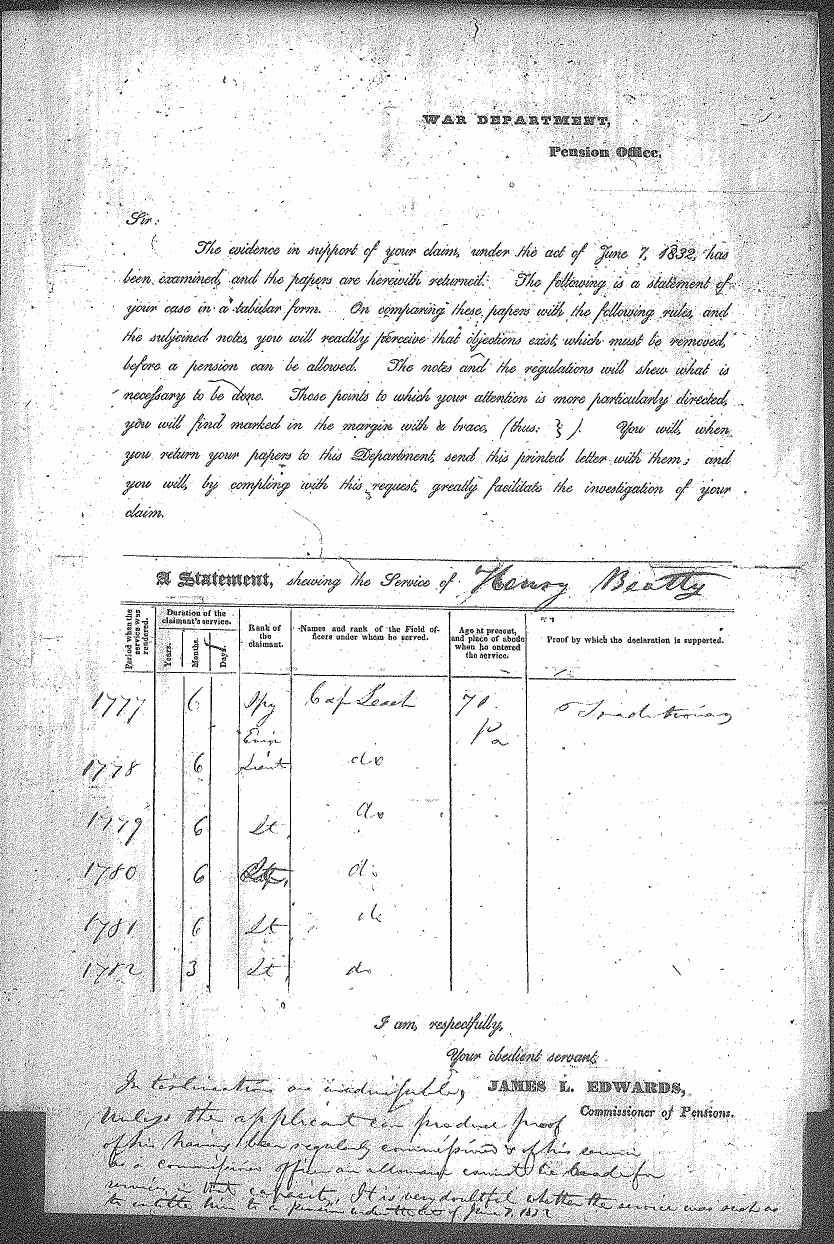 WAR DEPARTMENT,
Pension Office.
Sir:
The evidence in support of your claim, under the act of June 7, 1832, has
been examined, and the papers are herewith returned. The following is a statement of
your case in a tabular form. On comparing these papers with the following rules, and
the subjoined notes, you will readily perceive that objections exist, which must be removed,
before a pension can be allowed. The notes and the regulations will shew what is
necessary to be done. Those points to which your attention is more particularly directed,
you will find marked in the margin with a brace, (thus: } ). You will, when
you return your papers to this Department, send this printed letter with them; and
you will, by compling with this request, greatly facilitate the investigation of your
claim.
A Statement, shewing the Service of Henry Beatty
Period when the service was rendered.
Duration of the claimant's service.
Years. Months. Days.
Rank of the claimant.
Names and rank of the Field officers under whom he served.
Age at present, and place of abode when he entered the service.
Proof by which the declaration is supported.
1777 6 Spy Cap 70 Traditionary
Pa
1778 6 Lieut do
1779 6 Lt do
1780 6 do
1781 6 Lt do
1782 3 Lt do
I am, respectfully,
Your obedient servant,
JAMES L. EDWARDS,
Commissioner of Pensions.
Interlineations are inadmissible,
Unless the applicant can produce proof
of his having been regularly commissioned & of his service
as a commissioned officer an allowance cannot be made for
service in that capacity. It is very doubtful whether the service was such as
to entitle him to a pension under the act of June 7, 1832